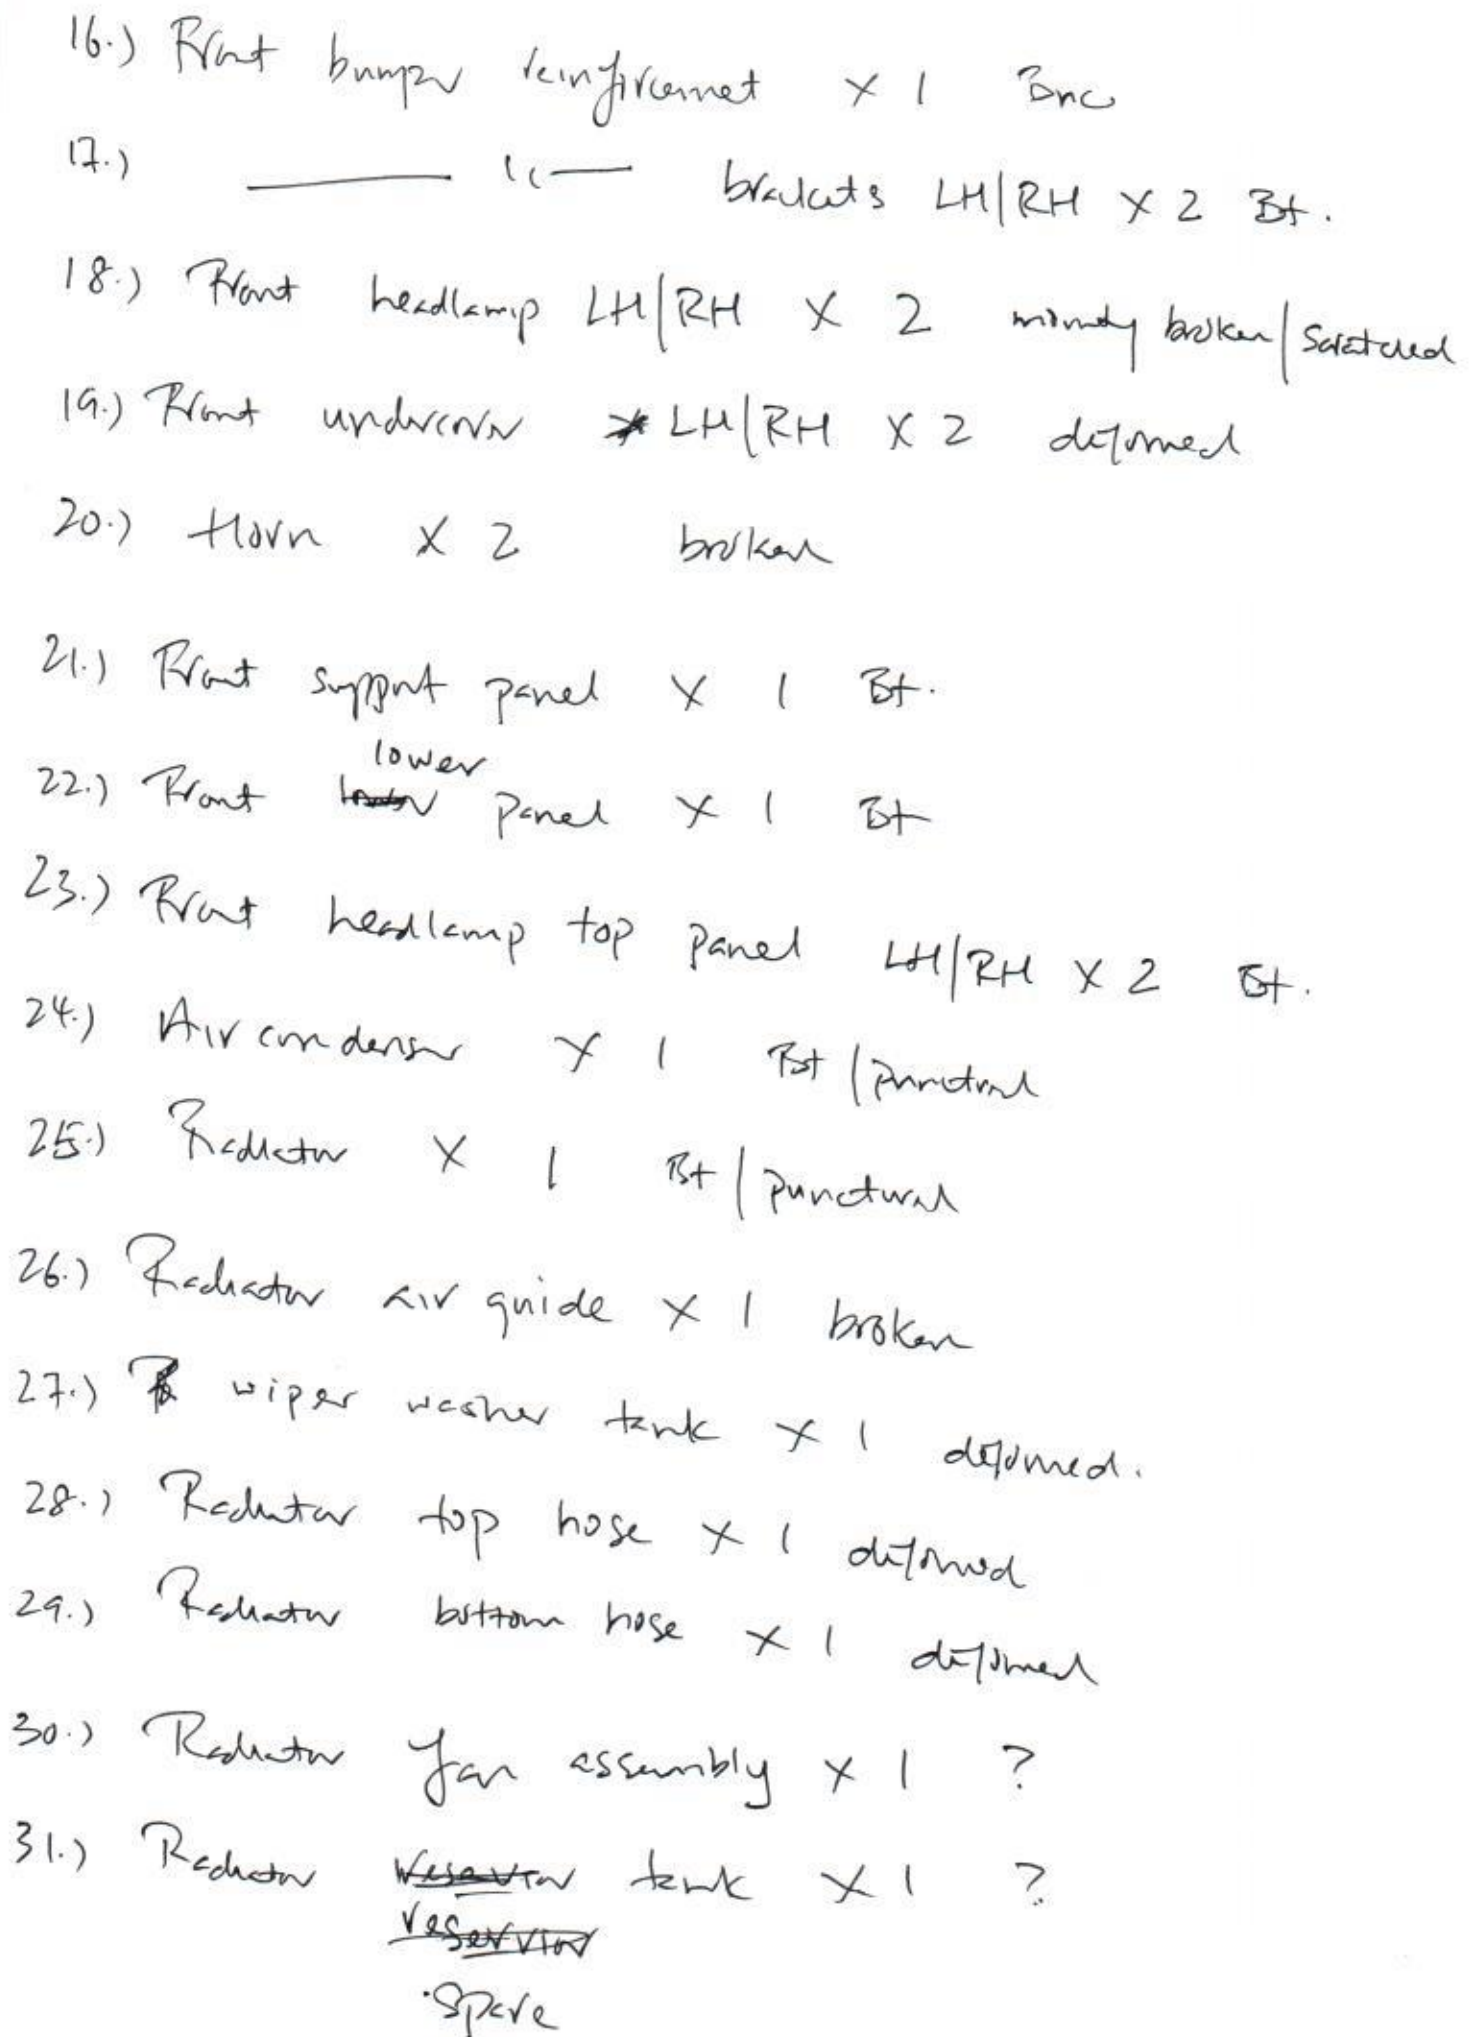 16.) Front bumper reinforcement X 1 Bnc
17.) ——— " — brackets LH/RH X 2 Bt.
18.) Front headlamp LH/RH X 2 mounting broken/scratched
19.) Front undercover LH/RH X 2 deformed
20.) Horn X 2 broken
21.) Front support panel X 1 Bt.
22.) Front lower panel X 1 Bt
23.) Front headlamp top panel LH/RH X 2 Bt.
24.) Air condenser X 1 Bt/punctured
25.) Radiator X 1 Bt/punctured
26.) Radiator air guide X 1 broken
27.) wiper washer tank X 1 deformed.
28.) Radiator top hose X 1 deformed
29.) Radiator bottom hose X 1 deformed
30.) Radiator fan assembly X 1 ?
31.) Radiator reservior tank X 1 ?
reservior
spare